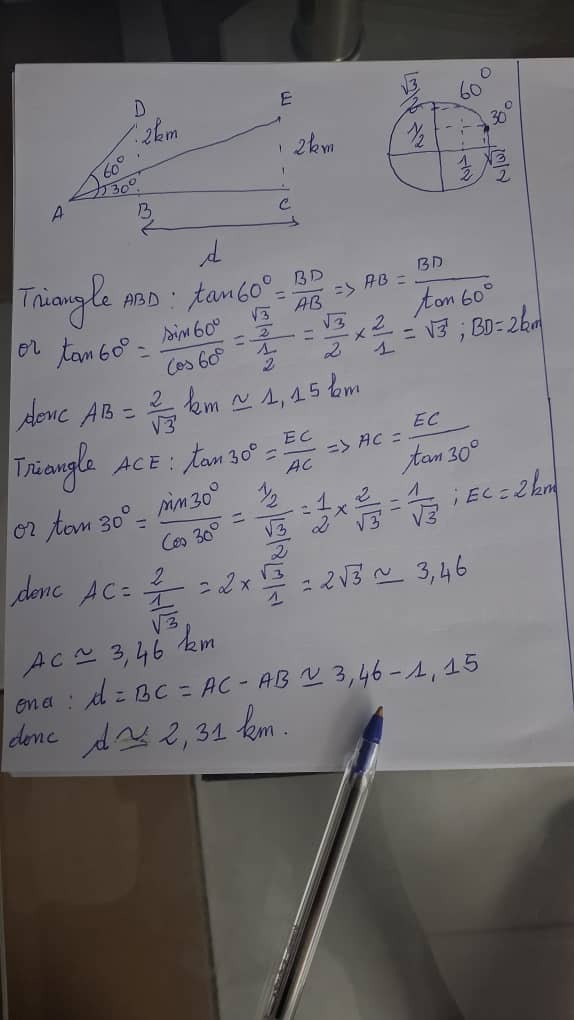 D
2km
60°
30°
A
B
E
2km
C
d
√3/2
60°
1/2
30°
1/2
√3/2
Triangle ABD : tan60° = BD/AB => AB = BD/tan60°
or tan60° = sin60°/cos60° = (√3/2)/(1/2) = √3/2 × 2/1 = √3 ; BD=2km
donc AB = 2/√3 km ≃ 1,15km
Triangle ACE : tan30° = EC/AC => AC = EC/tan30°
or tan30° = sin30°/cos30° = (1/2)/(√3/2) = 1/2 × 2/√3 = 1/√3 ; EC=2km
donc AC = 2/(1/√3) = 2 × √3/1 = 2√3 ≃ 3,46
AC ≃ 3,46 km
ona : d = BC = AC - AB ≃ 3,46 - 1,15
donc d ≃ 2,31 km.